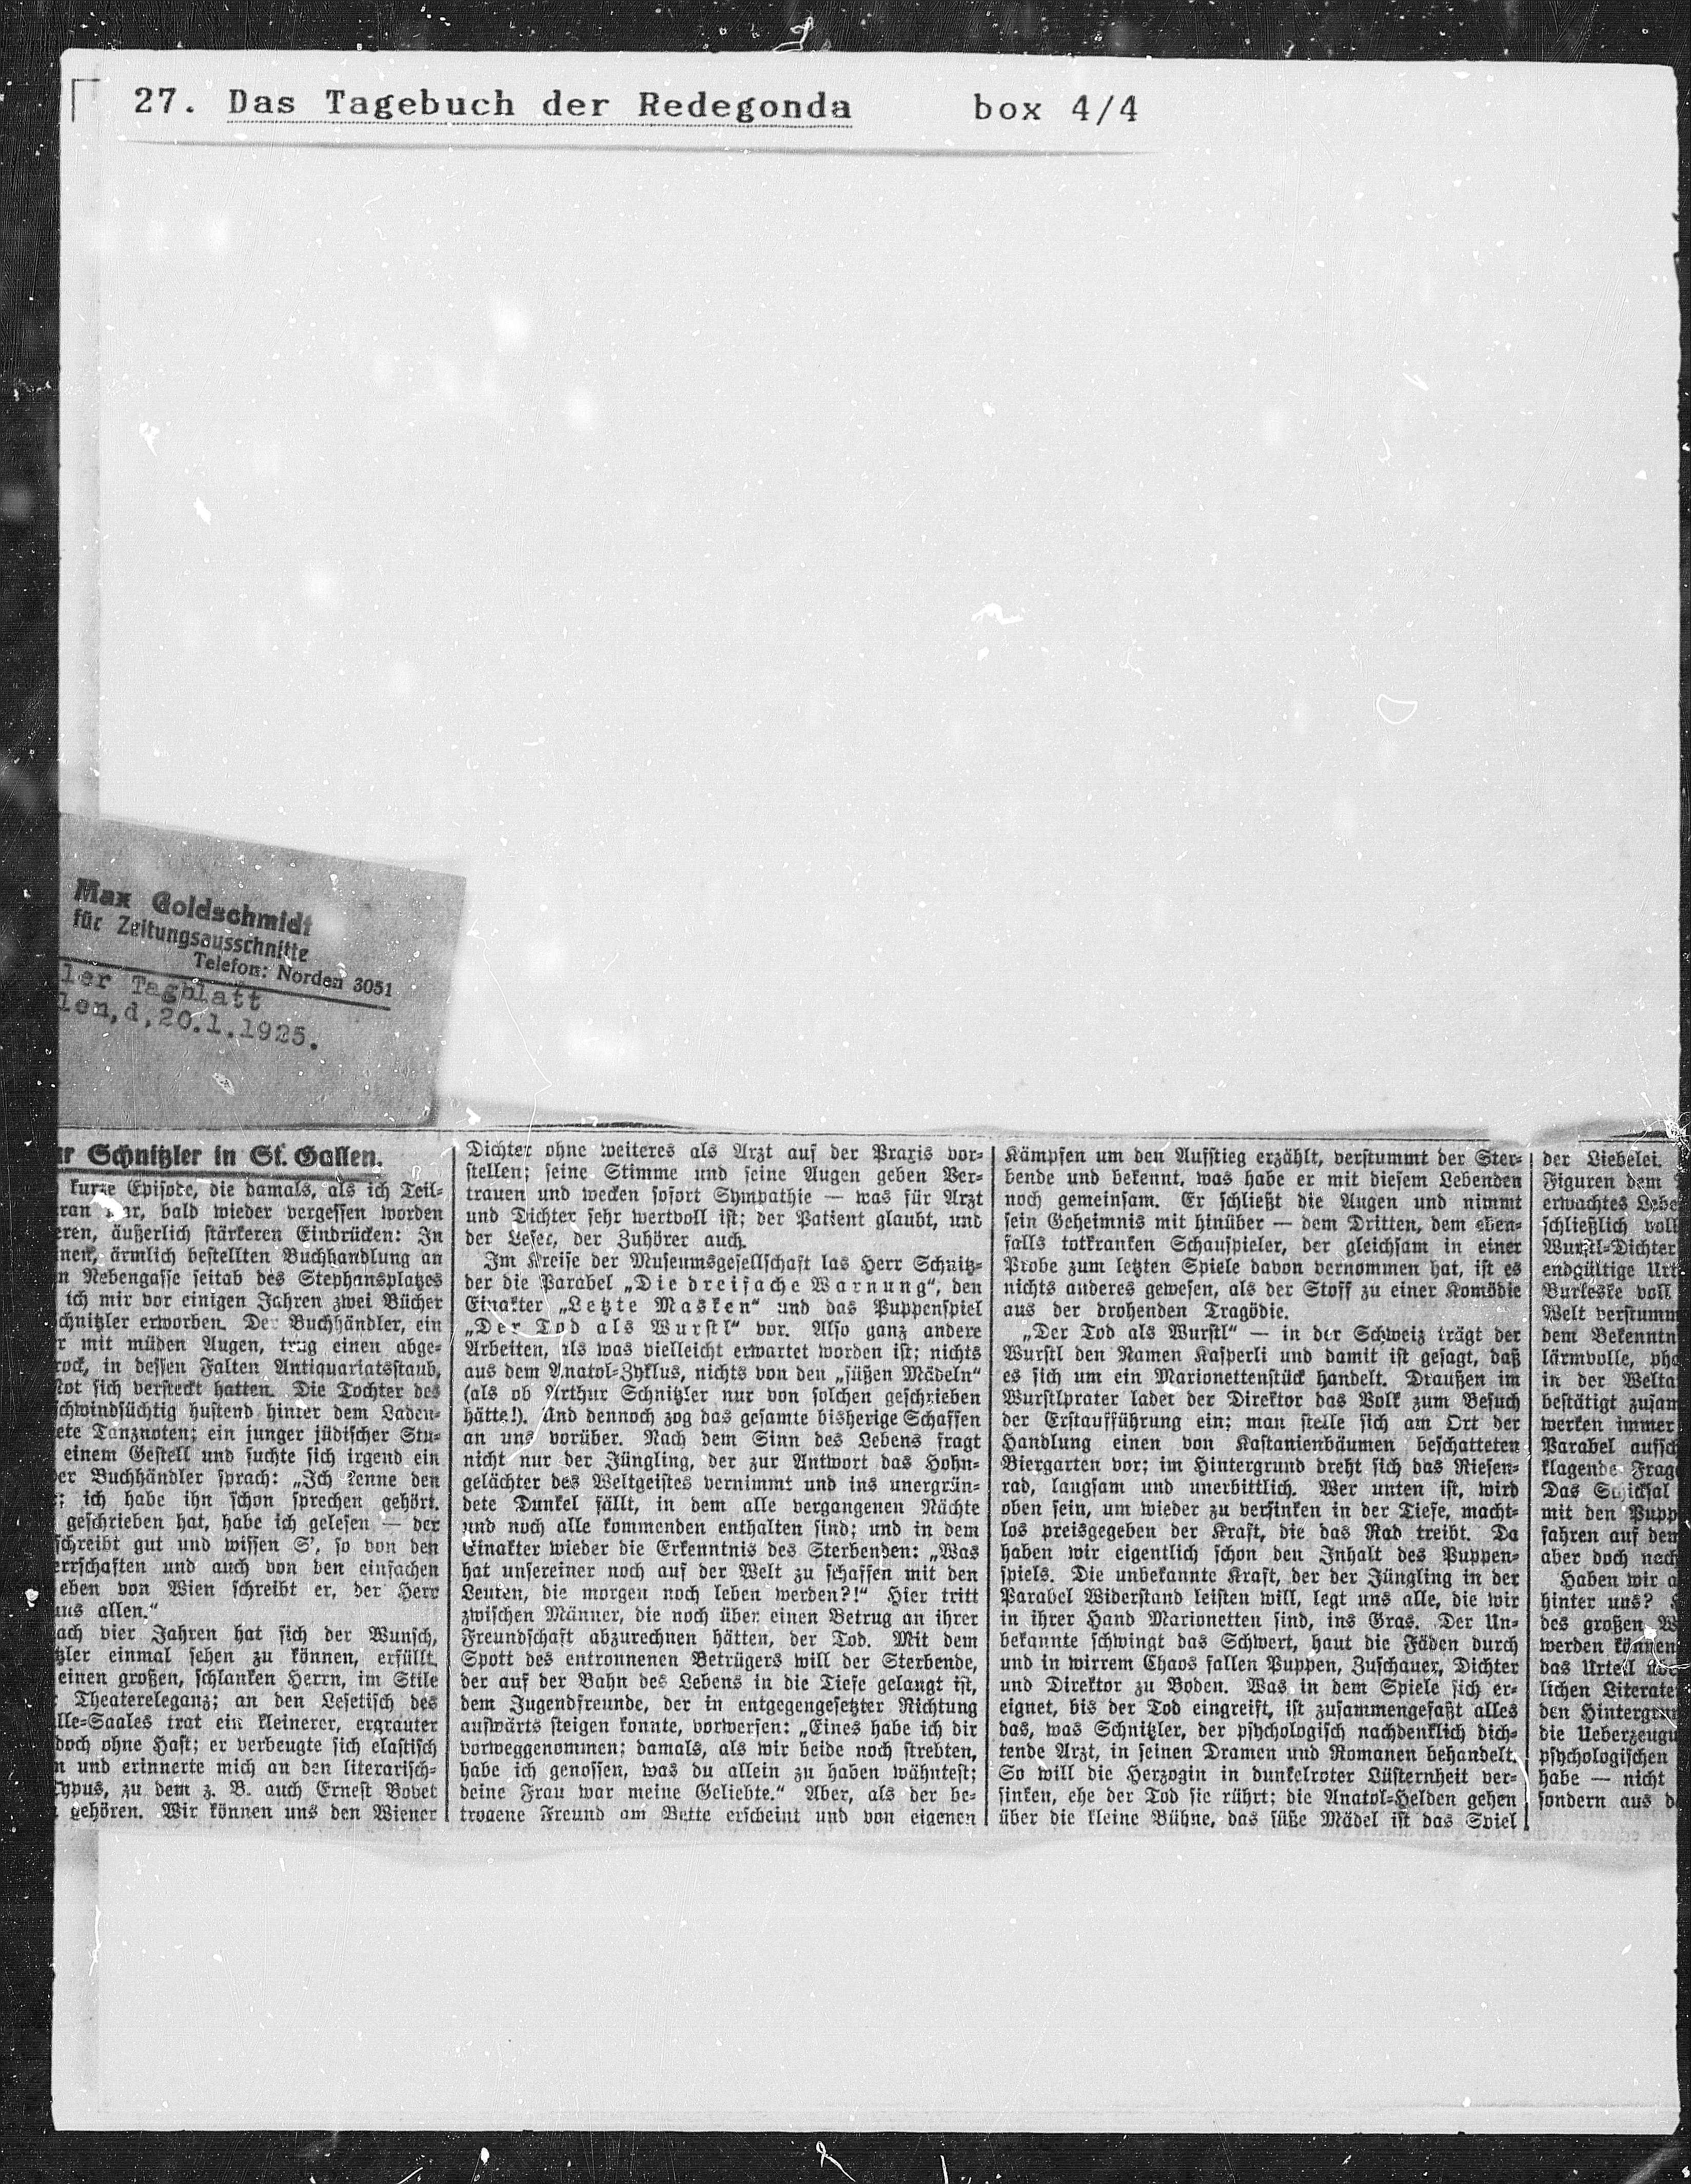 27. Das Tagebuch der Redegonda box 4/4
Max Goldschmidt
für Zeitungsausschnitte
Telefon: Norden 3051
ler Tagblatt
len,d,20.1.1925.
r Schnitzler in St. Gallen.
kurze Episode, die damals, als ich Teil-
ran war, bald wieder vergessen worden
eren, äußerlich stärkeren Eindrücken: In
nen, ärmlich bestellten Buchhandlung an
n Nebengasse seitab des Stephansplatzes
ich mir vor einigen Jahren zwei Bücher
chnitzler erworben. Der Buchhändler, ein
r mit müden Augen, trug einen abge-
rock, in dessen Falten Antiquariatsstaub,
Not sich versteckt hatten. Die Tochter des
schwindsüchtig hustend hinter dem Laden-
ete Tanznoten; ein junger jüdischer Stu-
einem Gestell und suchte sich irgend ein
er Buchhändler sprach: „Ich kenne den
; ich habe ihn schon sprechen gehört.
geschrieben hat, habe ich gelesen — der
schreibt gut und wissen S', so von den
errschaften und auch von den einfachen
eben von Wien schreibt er, der Herr
uns allen.“
ach vier Jahren hat sich der Wunsch,
tzler einmal sehen zu können, erfüllt.
einen großen, schlanken Herrn, im Stile
Theatereleganz; an den Lesetisch des
lle-Saales trat ein kleinerer, ergrauter
doch ohne Hast; er verbeugte sich elastisch
n und erinnerte mich an den literarisch-
Typus, zu dem z. B. auch Ernest Bovet
gehören. Wir können uns den Wiener
Dichter ohne weiteres als Arzt auf der Praxis vor-
stellen; seine Stimme und seine Augen geben Ver-
trauen und wecken sofort Sympathie — was für Arzt
und Dichter sehr wertvoll ist; der Patient glaubt, und
der Leser, der Zuhörer auch.
Im Kreise der Museumsgesellschaft las Herr Schnitz-
der die Parabel „Die dreifache Warnung“, den
Einakter „Letzte Masken“ und das Puppenspiel
„Der Tod als Wurstl“ vor. Also ganz andere
Arbeiten, als was vielleicht erwartet worden ist; nichts
aus dem Anatol-Zyklus, nichts von den „süßen Mädeln“
(als ob Arthur Schnitzler nur von solchen geschrieben
hätte!). Und dennoch zog das gesamte bisherige Schaffen
an uns vorüber. Nach dem Sinn des Lebens fragt
nicht nur der Jüngling, der zur Antwort das Hohn-
gelächter des Weltgeistes vernimmt und ins unergrün-
dete Dunkel fällt, in dem alle vergangenen Nächte
und noch alle kommenden enthalten sind; und in dem
Einakter wieder die Erkenntnis des Sterbenden: „Was
hat unsereiner noch auf der Welt zu schaffen mit den
Leuten, die morgen noch leben werden?!“ Hier tritt
zwischen Männer, die noch über einen Betrug an ihrer
Freundschaft abzurechnen hätten, der Tod. Mit dem
Spott des entronnenen Betrügers will der Sterbende,
der auf der Bahn des Lebens in die Tiefe gelangt ist,
dem Jugendfreunde, der in entgegengesetzter Richtung
aufwärts steigen konnte, vorwerfen: „Eines habe ich dir
vorweggenommen; damals, als wir beide noch strebten,
habe ich genossen, was du allein zu haben wähntest;
deine Frau war meine Geliebte.“ Aber, als der be-
trogene Freund am Bette erscheint und von eigenen
Kämpfen um den Aufstieg erzählt, verstummt der Ster-
bende und bekennt, was habe er mit diesem Lebenden
noch gemeinsam. Er schließt die Augen und nimmt
sein Geheimnis mit hinüber — dem Dritten, dem eben-
falls totkranken Schauspieler, der gleichsam in einer
Probe zum letzten Spiele davon vernommen hat, ist es
nichts anderes gewesen, als der Stoff zu einer Komödie
aus der drohenden Tragödie.
„Der Tod als Wurstl“ — in der Schweiz trägt der
Wurstl den Namen Kasperli und damit ist gesagt, daß
es sich um ein Marionettenstück handelt. Draußen im
Wurstlprater ladet der Direktor das Volk zum Besuch
der Erstaufführung ein; man stelle sich am Ort der
Handlung einen von Kastanienbäumen beschatteten
Biergarten vor; im Hintergrund dreht sich das Riesen-
rad, langsam und unerbittlich. Wer unten ist, wird
oben sein, um wieder zu versinken in der Tiefe, macht-
los preisgegeben der Kraft, die das Rad treibt. Da
haben wir eigentlich schon den Inhalt des Puppen-
spiels. Die unbekannte Kraft, der der Jüngling in der
Parabel Widerstand leisten will, legt uns alle, die wir
in ihrer Hand Marionetten sind, ins Gras. Der Un-
bekannte schwingt das Schwert, haut die Fäden durch
und in wirrem Chaos fallen Puppen, Zuschauer, Dichter
und Direktor zu Boden. Was in dem Spiele sich er-
eignet, bis der Tod eingreift, ist zusammengefaßt alles
das, was Schnitzler, der psychologisch nachdenklich dich-
tende Arzt, in seinen Dramen und Romanen behandelt.
So will die Herzogin in dunkelroter Lüsternheit ver-
sinken, ehe der Tod sie rührt; die Anatol-Helden gehen
über die kleine Bühne, das süße Mädel ist das Spiel
der Liebelei.
Figuren dem
erwachtes Lebe
schließlich voll
Wurstl-Dichter
endgültige Urt
Burleske voll
Welt verstumm
dem Bekenntn
lärmvolle, pha
in der Welta
bestätigt zusam
werken immer
Parabel aufsch
klagende Frag
Das Schicksal
mit den Pupp
fahren auf dem
aber doch nach
Haben wir a
hinter uns?
des großen W
werden können
das Urteil übe
lichen Literate
den Hintergru
die Ueberzeugu
psychologischen
habe — nicht
sondern aus d